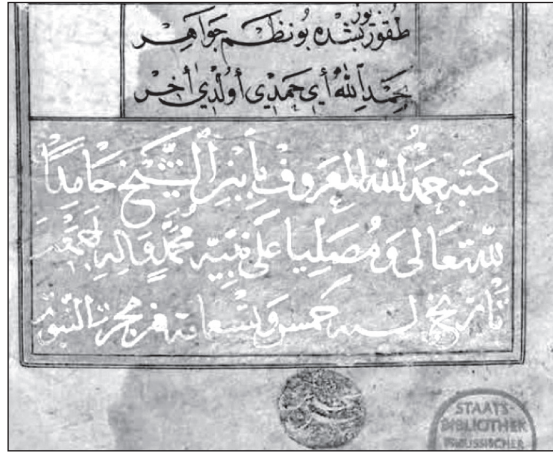 طقوز يوز بشده بو نظم جواهر
بحمد الله أي حمدي أولدي أخر
كتبه حمد الله المعروف بابن الشيخ حامدًا
لله تعالى ومصليا على نبيه محمد واله اجمعين
تاريخ لسنه خمس وتسعمائة من هجرة النبوية
STAATS-
BIBLIOTHEK
PREUSSISCHER